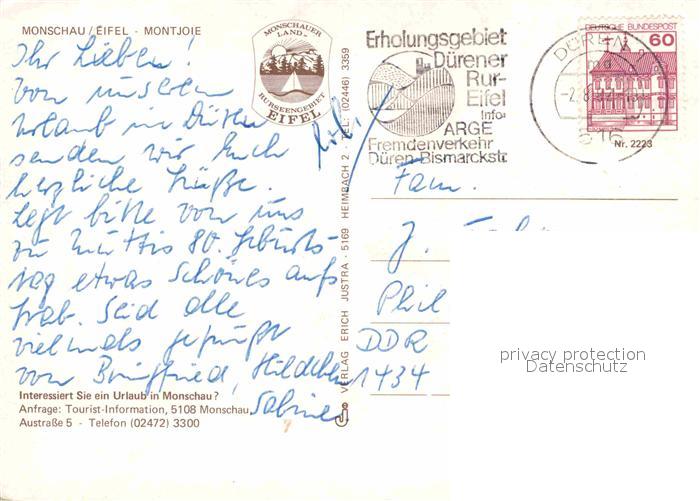 MONSCHAU / EIFEL - MONTJOIE
Ihr Lieben!
Von unserem
Urlaub in Düren
senden wir Euch
herzliche Grüße.
Legt bitte von uns
zu Muttis 80. Geburts-
tag etwas Schönes aufs
Grab. Seid alle
vielmals gegrüßt
von Bringfried, Hildchen
Sabine
Interessiert Sie ein Urlaub in Monschau?
Anfrage: Tourist-Information, 5108 Monschau,
Austraße 5 - Telefon (02472) 3300
MONSCHAUER
LAND
RURSEENGEBIET
EIFEL
VERLAG ERICH JUSTRA · 5169 HEIMBACH 2 · TEL: (02446) 3359
Erholungsgebiet
Dürener
Rur-
Eifel
Info:
ARGE
Fremdenverkehr
Düren-Bismarckstr.
DÜREN
DEUTSCHE BUNDESPOST
60
Nr. 2223
Fam.
J.
Phil
DDR
1434
privacy protection
Datenschutz